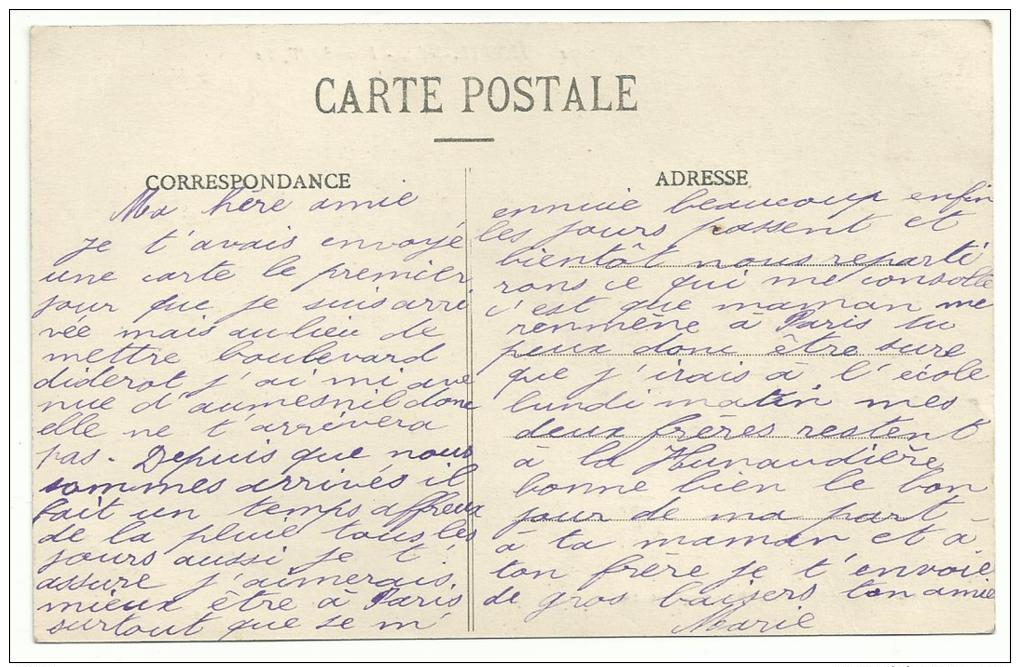 CARTE POSTALE
CORRESPONDANCE
Ma hère amie
je t'avais envoyé
une carte le premier
jour que je suis arri
vée mais au lieu de
mettre boulevard
diderot j'ai mi ave
nue d'aumesnil donc
elle ne t'arrivera
pas - Depuis que nous
sommes arrivés il
fait un temps affreux
de la pluie tous les
jours aussi je t'
assure j'aimerais
mieux être à Paris
surtout que je m'
ADRESSE
ennuie beaucoup enfin
les jours passent et
bientôt nous reparti
rons ce qui me consolle
c'est que maman me
renmène à Paris tu
peux donc être sure
que j'irais à l'école
lundi matin mes
deux frères restent
à la Hunaudière
donne bien le bon
jour de ma part
à ta maman et à
ton frère je t'envoie
de gros baisers ton amie
Marie